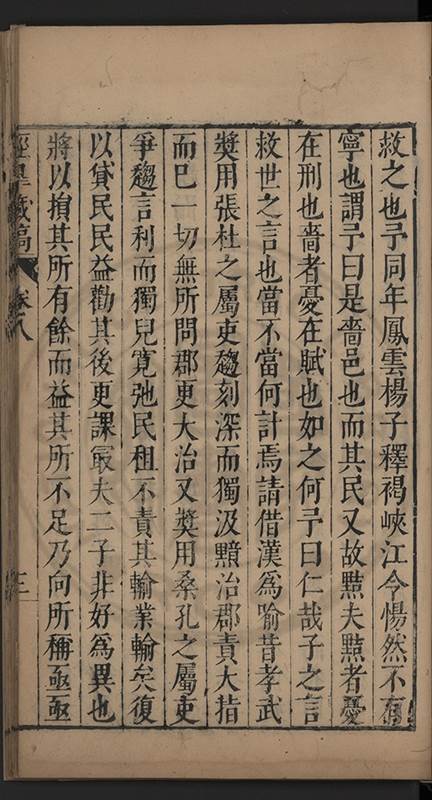 救之也予同年鳳雲楊子釋褐峽江令惕然不有
寧也謂予曰是嗇邑也而其民又故黠夫黠者憂
在刑也嗇者憂在賦也如之何予曰仁哉子之言
救世之言也當不當何計焉請借漢爲喻昔孝武
奬用張杜之屬吏趨刻深而獨汲黯治郡責大指
而巳一切無所問郡更大治又奬用桑孔之屬吏
爭趨言利而獨兒寛弛民租不責其輸業輸矣復
以貸民民益勸其後更課最夫二子非好爲異也
將以損其所有餘而益其所不足乃向所稱亟亟
涇臯藏稿
卷八
三